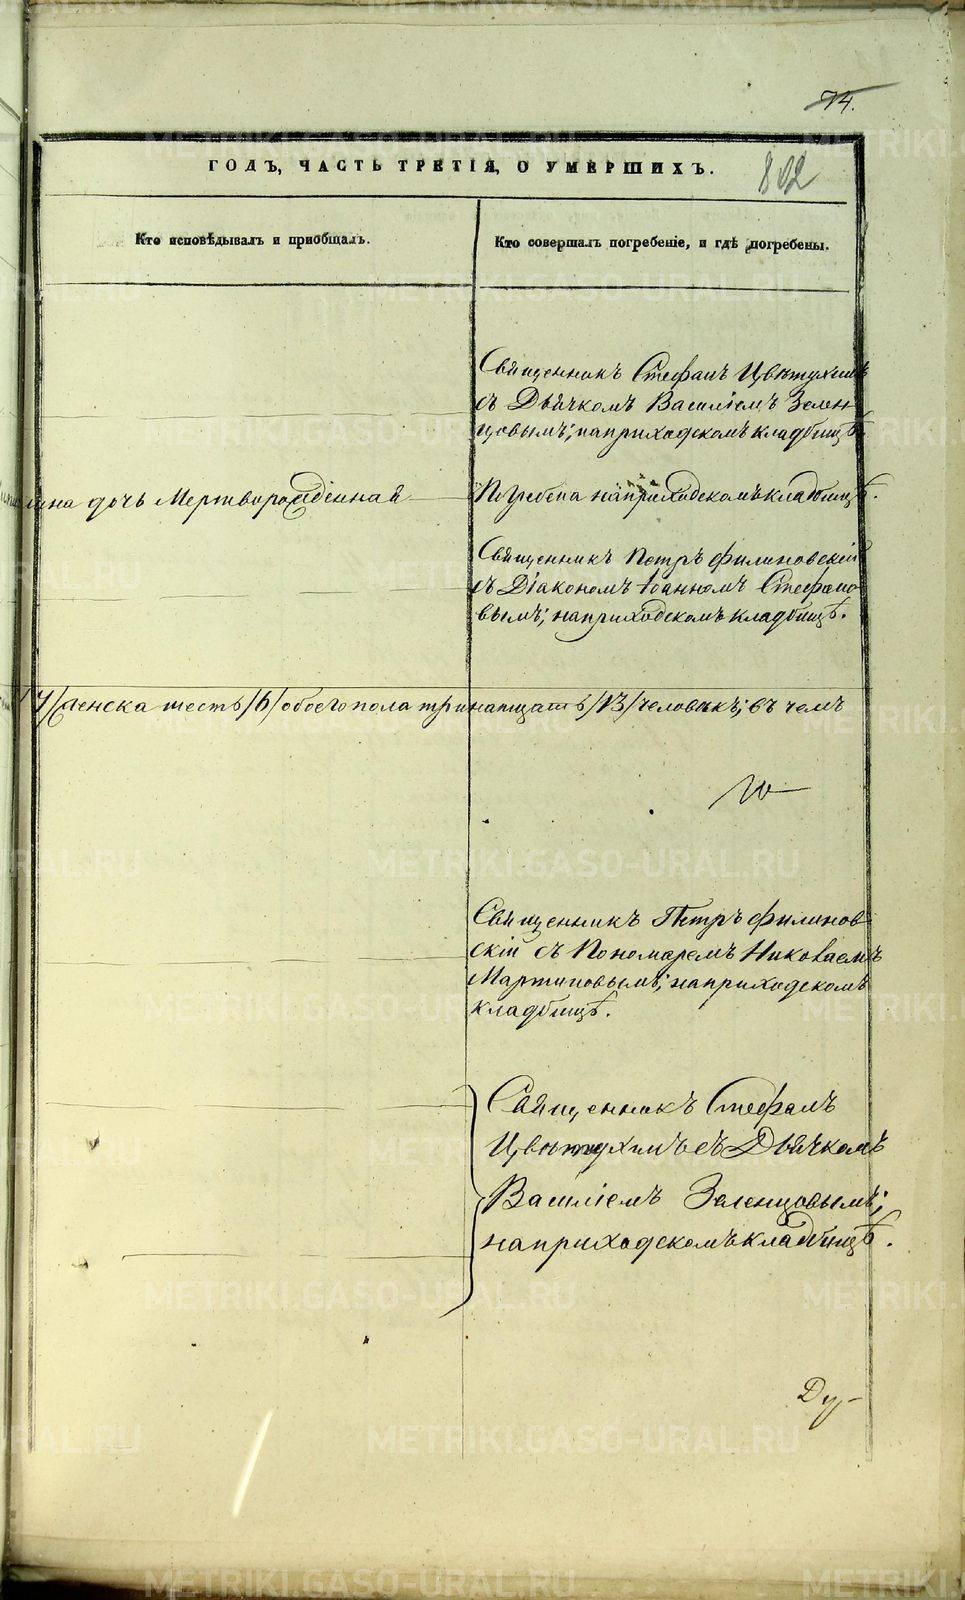 74.
ГОДЪ, ЧАСТЬ ТРЕТІЯ, О УМЕРШИХЪ.
802
Кто исповѣдывалъ и пріобщалъ.
Кто совершалъ погребеніе, и гдѣ погребены.
Священникъ Стефанъ Цвѣтухинъ
съ Дьячкомъ Василіемъ Зелен
цовымъ; на приходскомъ кладбищѣ.
дочь Мертворожденная
Погребена на приходскомъ кладбищѣ.
Священникъ Петръ Филиновскій
съ Діакономъ Іоанномъ Стефано
вымъ; на приходскомъ кладбищѣ.
/7/ женска шесть /6/ обоего пола тринатцать /13/ человѣкъ; въ чемъ
Священникъ Петръ Филинов
скій съ Пономаремъ Николаемъ
Мартиновымъ; на приходскомъ
кладбищѣ.
Священникъ Стефанъ
Цвѣтухинъ съ Дьячкомъ
Василіемъ Зеленцовымъ;
на приходскомъ кладбищѣ.
Ду-
METRIKI.GASO-URAL.RU